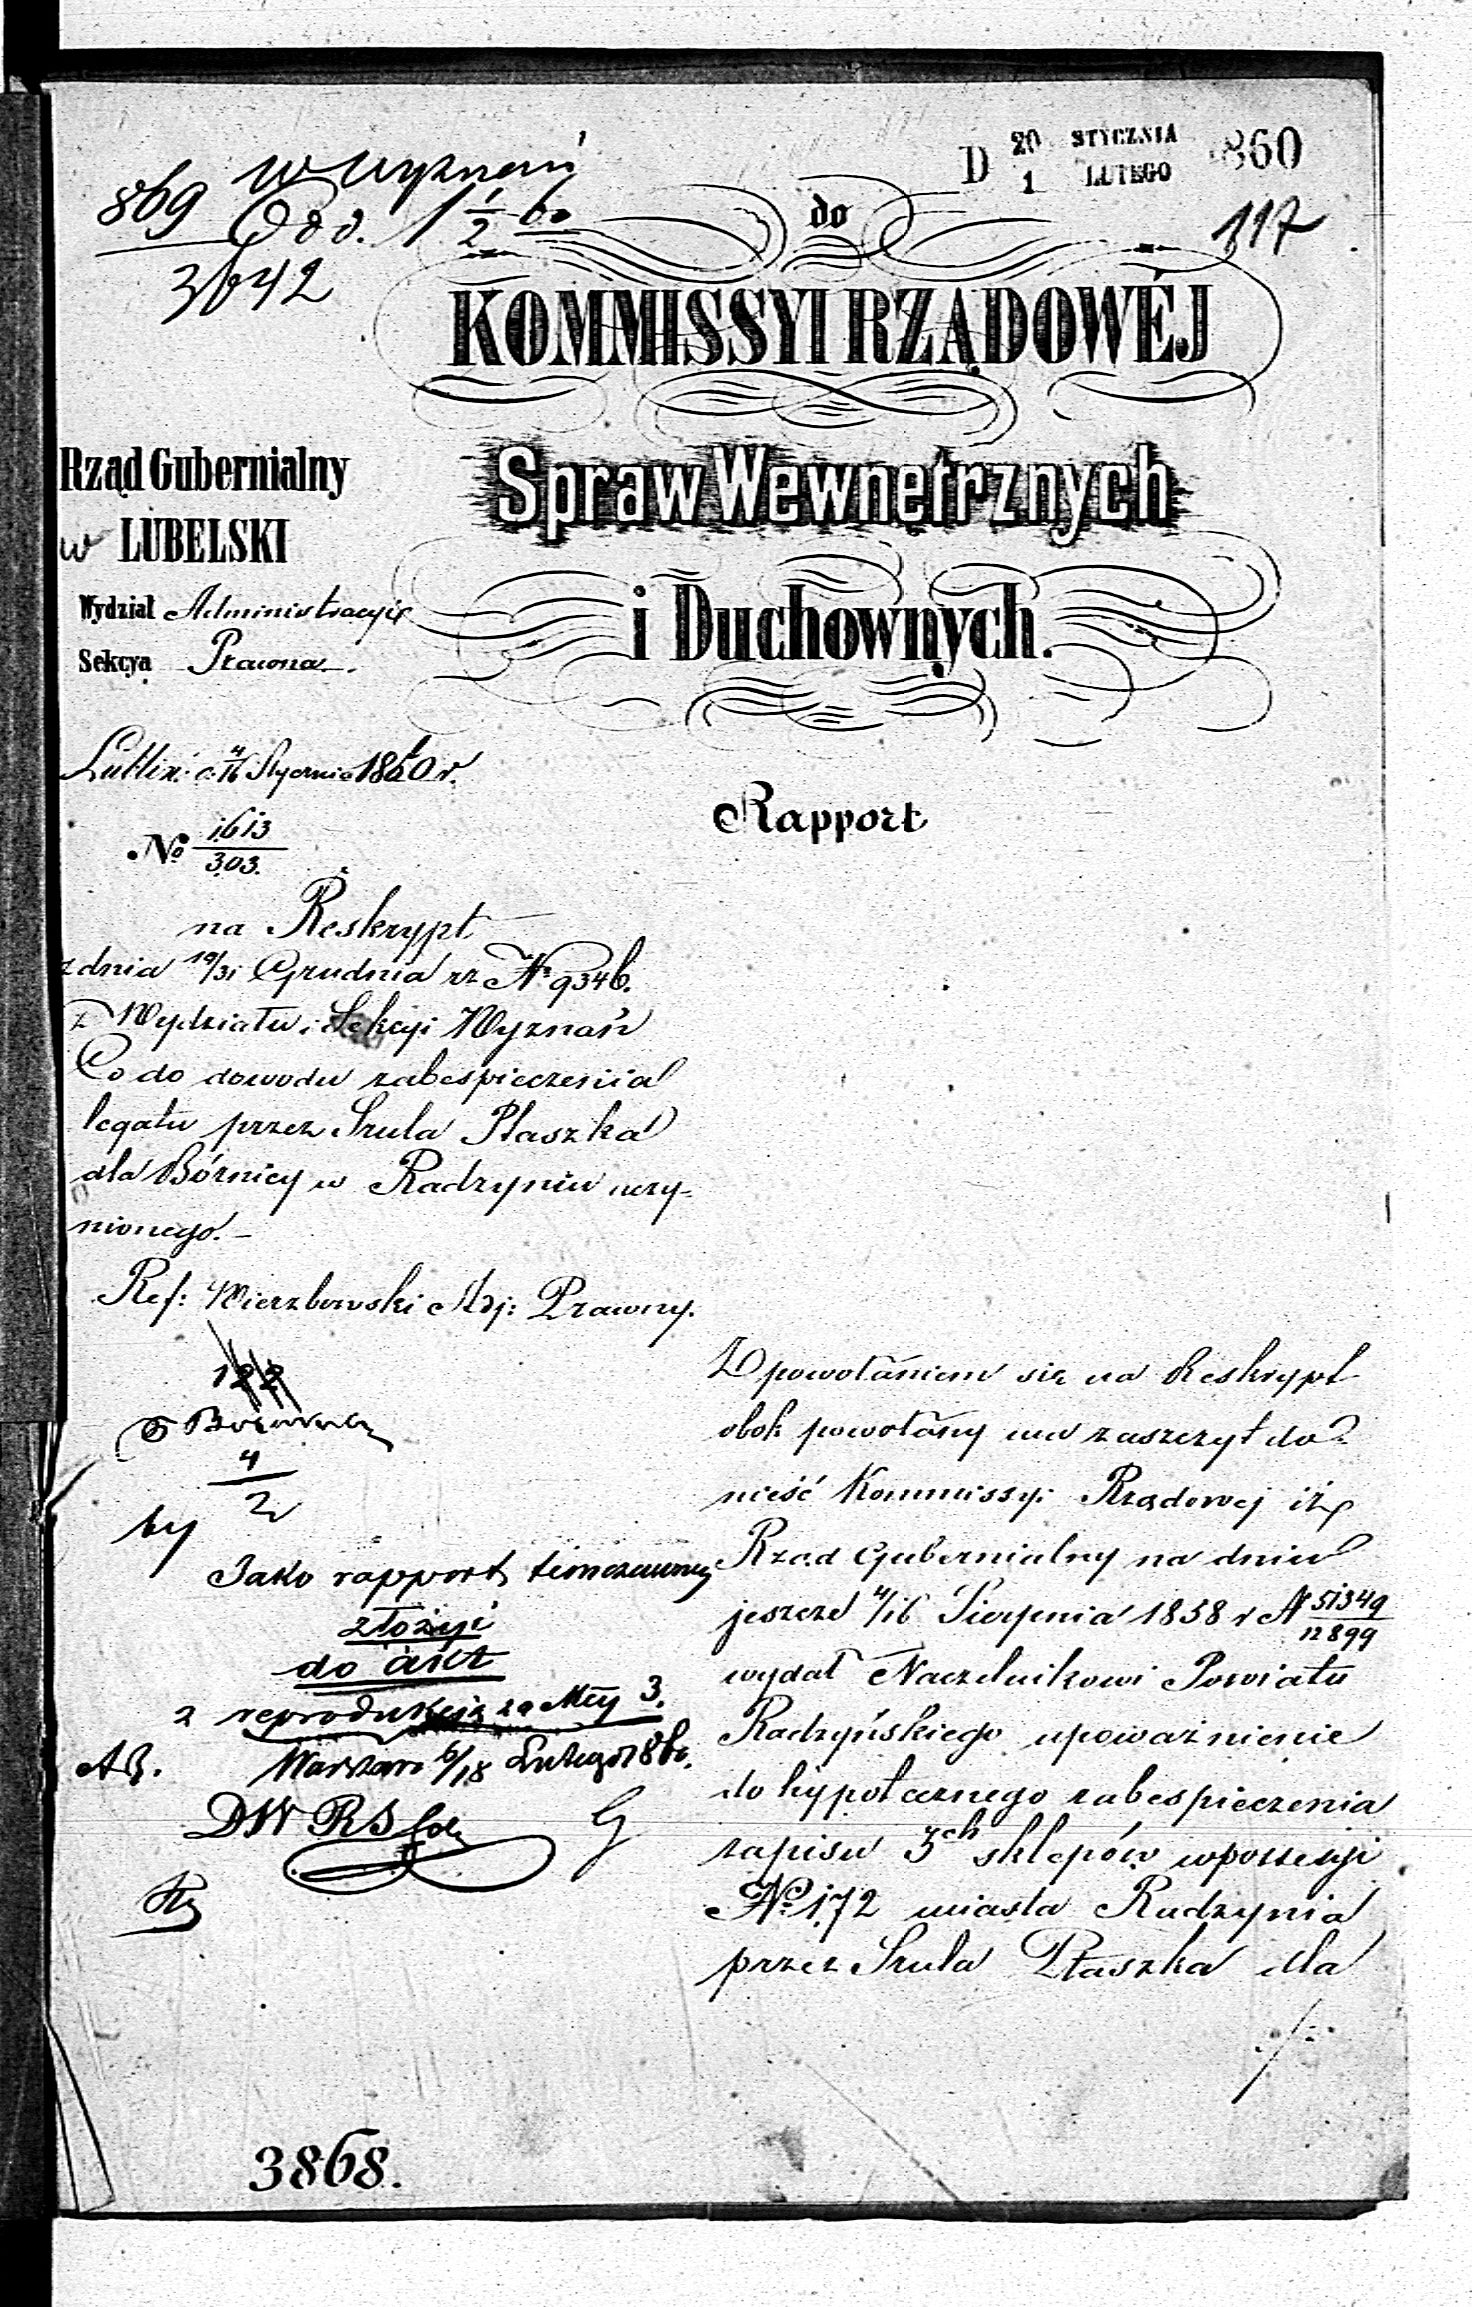 D 20 STYCZNIA 860
1 LUTEGO
w wyznań
869 Odd. 1 1/2 60
3642
117
do
KOMMISSYI RZĄDOWÉJ
Spraw Wewnętrznych
i Duchownych.
Rząd Gubernialny
w LUBELSKI
Wydział Administracyi
Sekcya Prawna.
Lublin d. 4/16 Stycznia 1860 r.
Rapport
No 1613
303.
na Reskrypt
z dnia 19/31 Grudnia rz No 9346.
z Wydziału i Sekcyi Wyznań
Co do dowodu zabespieczenia
legatu przez Srula Ptaszka
dla Bóżnicy w Radzyniu uczy-
nionego.-
Ref: Wierzbowski Adj: Prawny.
122
4
2
by
Jako rapport timczasowy
złożyć
do akt
z reprodukcją za Mcy 3.
AB. Warszawa 6/18 Lutego 1860.
DW RS
Z powołaniem się na Reskrypt
obok powołany ma zaszczyt do-
nieść Kommissyi Rządowej iż
Rząd Gubernialny na dniu
jeszcze 4/16 Sierpnia 1858 r N 51349
12899
wydał Naczelnikowi Powiatu
Radzyńskiego upoważnienie
do hypotecznego zabespieczenia
zapisu 3ch sklepów w possesyi
No 172 miasta Radzynia
przez Srula Ptaszka dla
./.
3868.